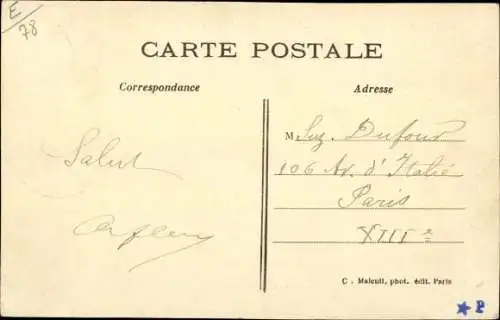 E
78
CARTE POSTALE
Correspondance
Adresse
Salut
M Suz. Dufour
106 Av. d'Italie
Paris
XIIIe
C. Malcuit, phot. édit. Paris
★ P